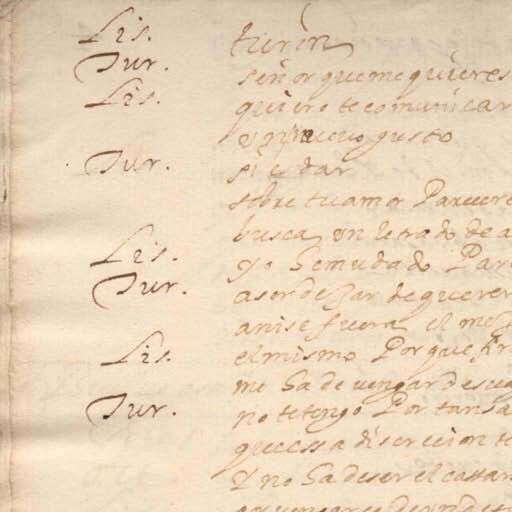 Lis. turin
Tur. señor que me quieres
Lis. quiero te comunicar
un nuevo gusto
Tur. si es dar
sobre tu amor Parecere
busca un letrado de a
Lis. yo e mudado Par
Tur. a ser de
ansi fuera el me
Lis. el mismo Porque
me a de vengar de su
Tur. no te tengo Por tan sa
que essa discrecion te
y no a de ser el castan